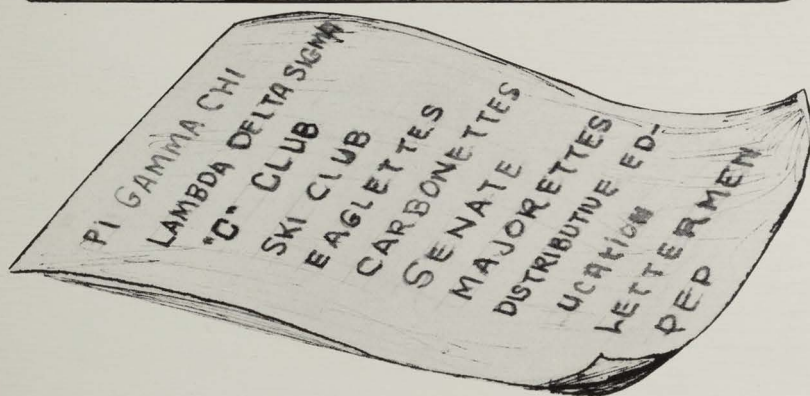 PI GAMMA CHI
LAMBDA DELTA SIGMA
"C" CLUB
SKI CLUB
EAGLETTES
CARBONETTES
SENATE
MAJORETTES
DISTRIBUTIVE ED-
UCATION
LETTERMEN
PEP